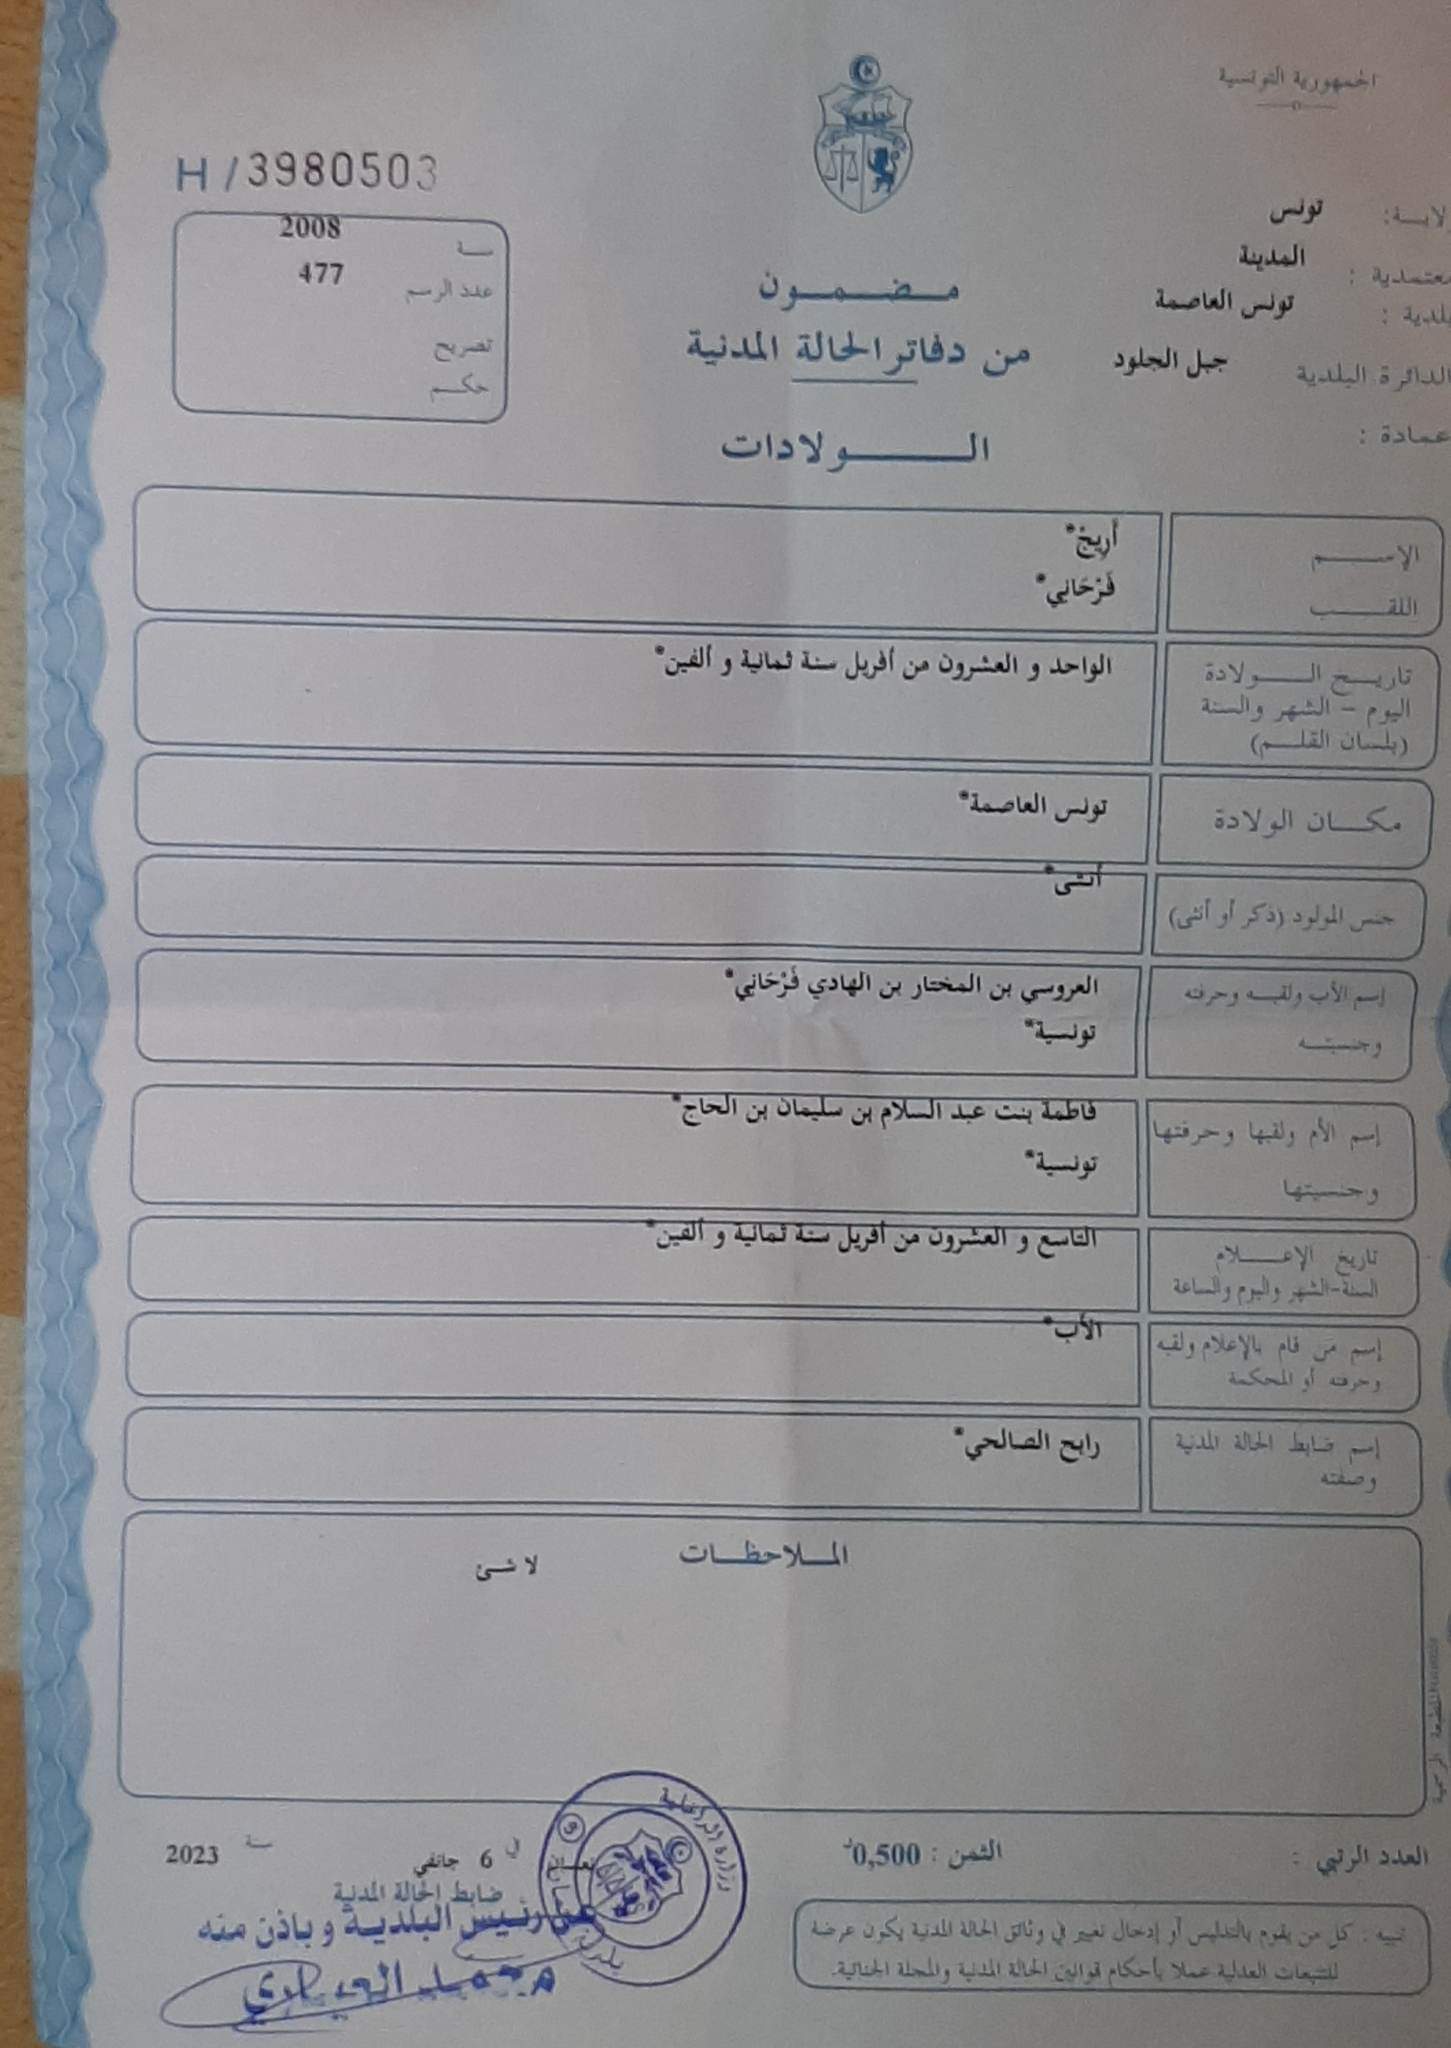 الجمهورية التونسية
H / 3980503
لايـة: تونس
معتمدية : المدينة
بلدية : تونس العاصمة
الدائرة البلدية جبل الجلود
عمادة :
سـة 2008
عدد الرسم 477
تصريح
حكـم
مـضـمـون
من دفاتر الحالة المدنية
الــولادات
الإسـم أَرِيجْ*
اللقـب فَرْحَانِي*
تاريـخ الـولادة الواحد و العشرون من أفريل سنة ثمانية و ألفين*
اليوم – الشهر والسنة
(بلسان القلـم)
مكـان الولادة تونس العاصمة*
جنس المولود (ذكر أو أنثى) أنثى*
إسم الأب ولقبـه وحرفته العروسي بن المختار بن الهادي فَرْحَانِي*
وجنسيتـه تونسية*
إسم الأم ولقبها وحرفتها فاطمة بنت عبد السلام بن سليمان بن الحاج*
وجنسيتها تونسية*
تاريخ الإعـلام التاسع و العشرون من أفريل سنة ثمانية و ألفين*
السنة-الشهر واليوم والساعة
إسم من قام بالإعلام ولقبه الأب*
وحرفته أو المحكمة
إسم ضابط الحالة المدنية رابح الصالحي*
وصفته
المـلاحظـات
لا شئ
العدد الرتبي :
الثمن : 0,500د
في 6 جانفي سـة 2023
ضابط الحالة المدنية
عن رئيس البلديـة و باذن منه
محمـد العيـاري
وزارة الداخلية
تنبيه : كل من يقوم بالتدليس أو إدخال تغيير في وثائق الحالة المدنية يكون عرضة
للتتبعات العدلية عملا بأحكام قوانين الحالة المدنية والمجلة الجنائية.